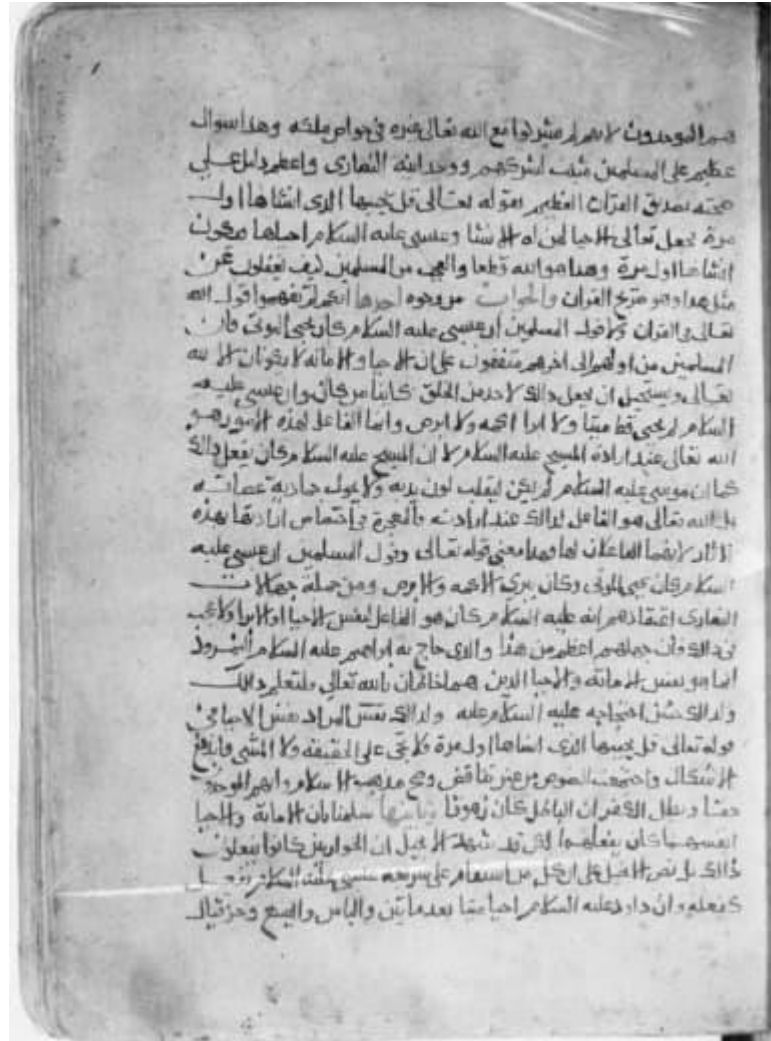 هم الموحدون لانهم لم يشركوا مع الله تعالى غيره في خواص ملكه وهذا سوال
عظيم على المسلمين مثبت لشركهم ووحدانية النصارى واعظم دليل على
صحته تصديق القران العظيم بقوله تعالى قل يحييها الذى انشاها اول
مرة يجعل تعالى الاحيا لمن له الانشا وعيسى عليه السلام احياها فيكون
انشاها اول مرة وهذا هو الله قطعا والعجب من المسلمين كيف يغفلون عن
مثل هذا وهو صريح القران والجواب من وجوه احدها انكم لم تفهموا قول الله
تعالى في القران ولا قول المسلمين ان عيسى عليه السلام كان يحيى الموتى فان
المسلمين من اولهم الى اخرهم متفقون على ان الاحيا والاماته لا يكونان الا لله
تعالى ويستحيل ان يجعل ذالك لاحد من الخلق كاينا من كان وان عيسى عليه
السلام لم يحيى قط ميتا ولا ابرا اكمه ولا ابرص وانما الفاعل لهذه الامور هو
الله تعالى عند ارادة المسيح عليه السلام لا ان المسيح عليه السلام كان يفعل ذالك
كما ان موسى عليه السلام لم يكن ليقلب لون يديه ولا يحول جمادية عصاته
بل الله تعالى هو الفاعل لذالك عند ارادته فالمعجزة في اختصاص ارادتها بهذه
الاثار لا انهما الفاعلان لها وهذا معنى قوله تعالى وقول المسلمين ان عيسى عليه
السلام كان يحيى الموتى وكان يبرى الاكمه والابرص ومن جملة جهالات
النصارى اعتقادهم انه عليه السلام كان هو الفاعل لنفس الاحيا او الابرا ولا عجب
في ذالك فان جهلهم اعظم من هذا والذى حاج به ابراهيم عليه السلام النمرود
انما هو نفس الاماتة والاحيا الذين هما خاصان بالله تعالى فلتعلم ذالك
ولذالك حسن احتجاجه عليه السلام عليه ولذالك نفس المراد بنفس الاحيا في
قوله تعالى قل يحييها الذى انشاها اول مرة فلا يحى على الحقيقة الا المنشى فاندفع
الاشكال واجتمعت النصوص من غير تناقض وصح مذهب الاسلام وانهم الموحدون
حقا وبطل الكفر ان الباطل كان زهوقا وثانيها سلمنا بان الاماتة والاحيا
انفسهما كان يفعلهما لكن قد شهد الانجيل ان الحواريين كانوا يفعلون
ذالك بل نص الانجيل على ان كل من استقام على شريعة عيسى عليه السلام يفعل
كفعله وان داود عليه السلام احيا ميتا بعد مايتين والياس واليسع وحزقيال